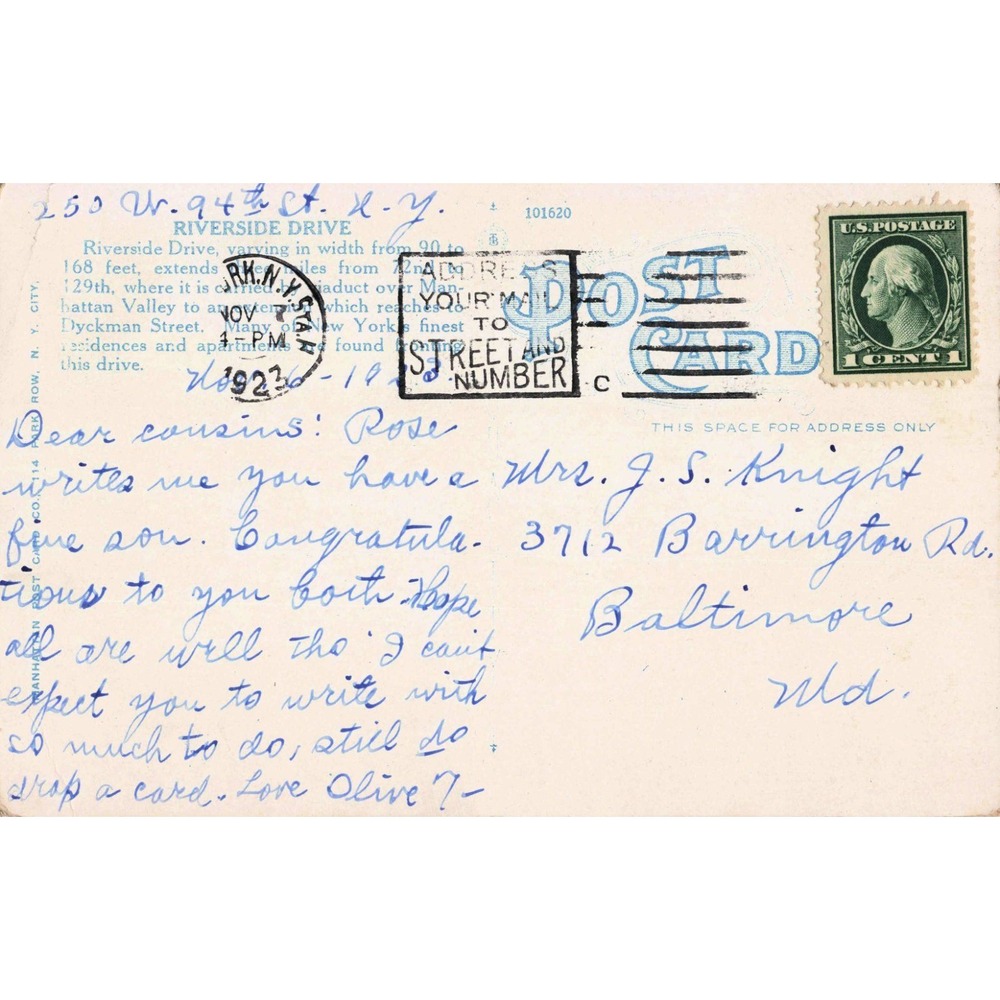 250 W. 94th St. N.Y.
RIVERSIDE DRIVE
Riverside Drive, varying in width from 90 to
168 feet, extends miles from 72nd to
129th, where it is carried viaduct over Man-
hattan Valley to an which reaches to
Dyckman Street. Many of New York's finest
residences and apartments found
this drive.
101620
POST
CARD
RK.N.Y.STA.H
NOV
4- PM
1923
ADDRESS
YOUR MAIL
TO
STREET AND
NUMBER
C
U.S.POSTAGE
1 CENT 1
THIS SPACE FOR ADDRESS ONLY
Nov. 1923
Dear cousins: Rose
writes me you have a
fine son. Congratula-
tions to you both. Hope
all are well tho' I can't
expect you to write with
so much to do, still do
drop a card. Love Olive
Mrs. J. S. Knight
3712 Barrington Rd.
Baltimore
Md.
MANHATTAN POST CARD CO., 114 PARK ROW, N. Y. CITY.